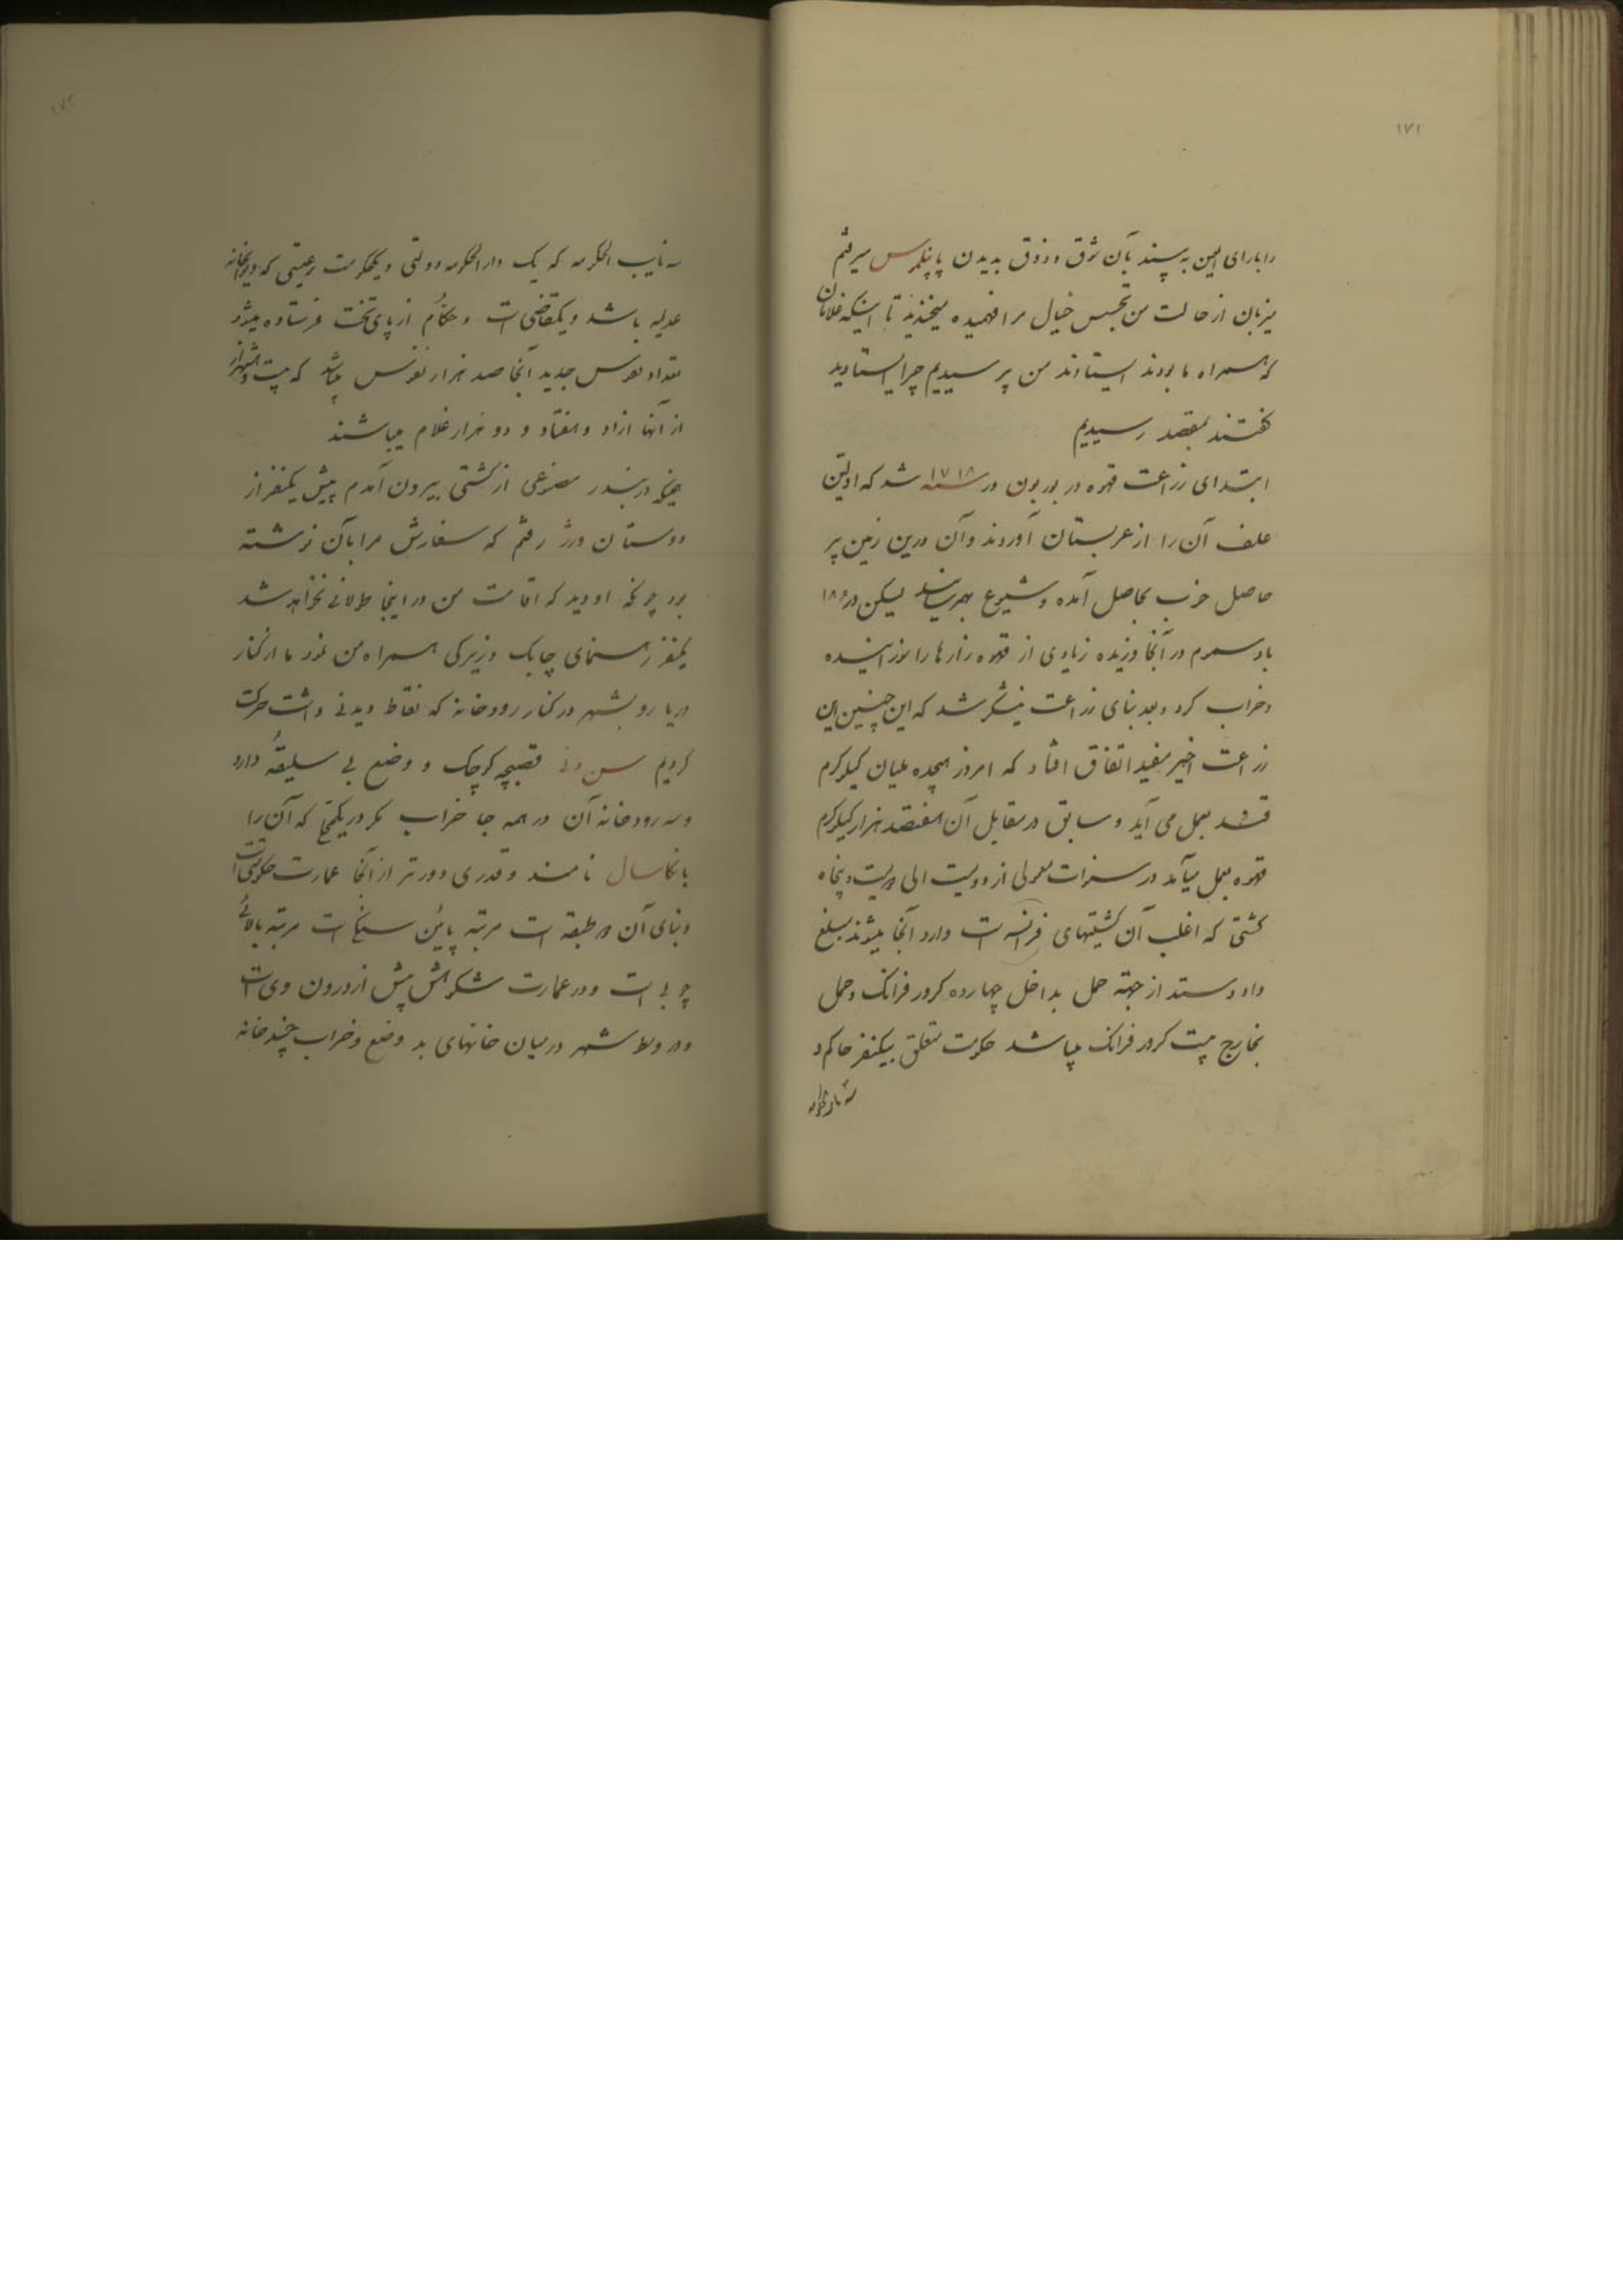 ۱۷۱
را بارای العین به پسند بآن شوق و ذوق بدیدن میرفتم
میزبان از حالت من تجسس خیال مرا فهمیده میخندید تا اینکه غلامان
که همراه ما بودند ایستادند من پرسیدیم چرا ایستادید
گفتند بمقصد رسیدیم
ابتدای زراعت قهوه در بوربون در سنه ۱۷۱۸ شد که اولین
علف آن را از عربستان آوردند و آن درین زمین پر
حاصل خوب بحاصل آمده و شیوع بهمرسانید لیکن در
باد سموم در آنجا وزیده زیادی از قهوه زارها را سوزانیده
و خراب کرد و بعد بنای زراعت نیشکر شد که این چنین این
زراعت اخیر مفید اتفاق افتاد که امروز هیجده ملیان کیلوکرم
قند بعمل می آید و سابق در مقابل آن هفتصد هزار کیلوکرم
قهوه بعمل میآمد در سنوات معمولی از دویست الی دویست و پنجاه
کشتی که اغلب آن کشتیهای فرانسه است وارد آنجا میشوند مبلغ
داد و ستد از جهته حمل بداخل چهارده کرور فرانک و حمل
بخارج بیست کرور فرانک میباشد حکومت متعلق بیکنفر حاکم و
سه نایب الحکومه
سه نایب الحکومه که یک دارالحکومه دولتی و یکحکومت رعیتی که دیوانخانه
عدلیه باشد و یکقاضی است و حکّام از پای تخت فرستاده میشود
تعداد نفوس جدید آنجا صد هزار نفوس میباشد که بیست و هشتهزار
از آنها ازاد و هفتاد و دو هزار غلام میباشند
همینکه در بندر مصنوعی از کشتی بیرون آمدم پیش یکنفر از
دوستان ورژ رفتم که سفارش مرا بآن نوشته
بود چونکه او دید که اقامت من در اینجا طولانی نخواهد شد
یکنفر رهنمای چابک و زیرکی همراه من نمود ما از کنار
دریا رو بشهر در کنار رودخانه که نقاط دیدنی داشت حرکت
کردیم سن دنی قصبچه کوچک و وضع بی سلیقهٔ دارد
و سه رودخانه آن در همه جا خراب مگر در یکجا که آن را
بانکاسال نامند و قدری دورتر از آنجا عمارت حکومتی است
و بنای آن دو طبقه است مرتبه پایین سنگ است مرتبه بالائی
چوبی است و در عمارت شکوهش پیش از درون وی است
و در وسط شهر در میان خانهای بد وضع و خراب چند خانه